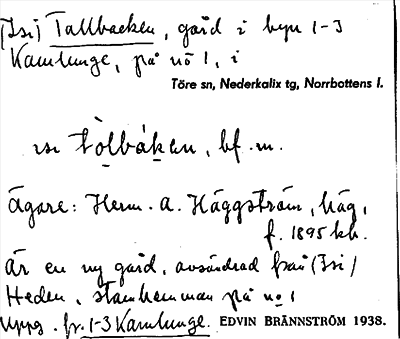 (Isi) Tallbacken, gård i byn 1-3
Kamlunge, på nº 1, i
Töre sn, Nederkalix tg, Norrbottens l.
isi tòlbàkan, bf. m.
Ägare: Herm. A. Häggström, häg,
f. 1895 kh.
Är en ny gård, avsöndrad från (Isi)
Heden, stamhemman på nº 1
Uppg. fr. 1-3 Kamlunge. EDVIN BRÄNNSTRÖM 1938.